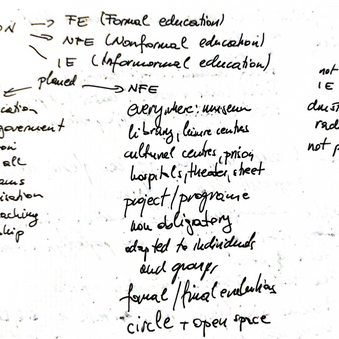 ON → FE (Formal education)
→ NFE (Nonformal education)
IE (Informormal education)
planed → NFE
not
IE
cation
government
all
ams
isation
eaching
ship
everywhere: museum
library, leisure centres
cultural centres, prison,
hospitals, theater, street
project/programe
non obligatory
adapted to individuals
and groups,
formal/final evaluations
circle + open space
rad
not p